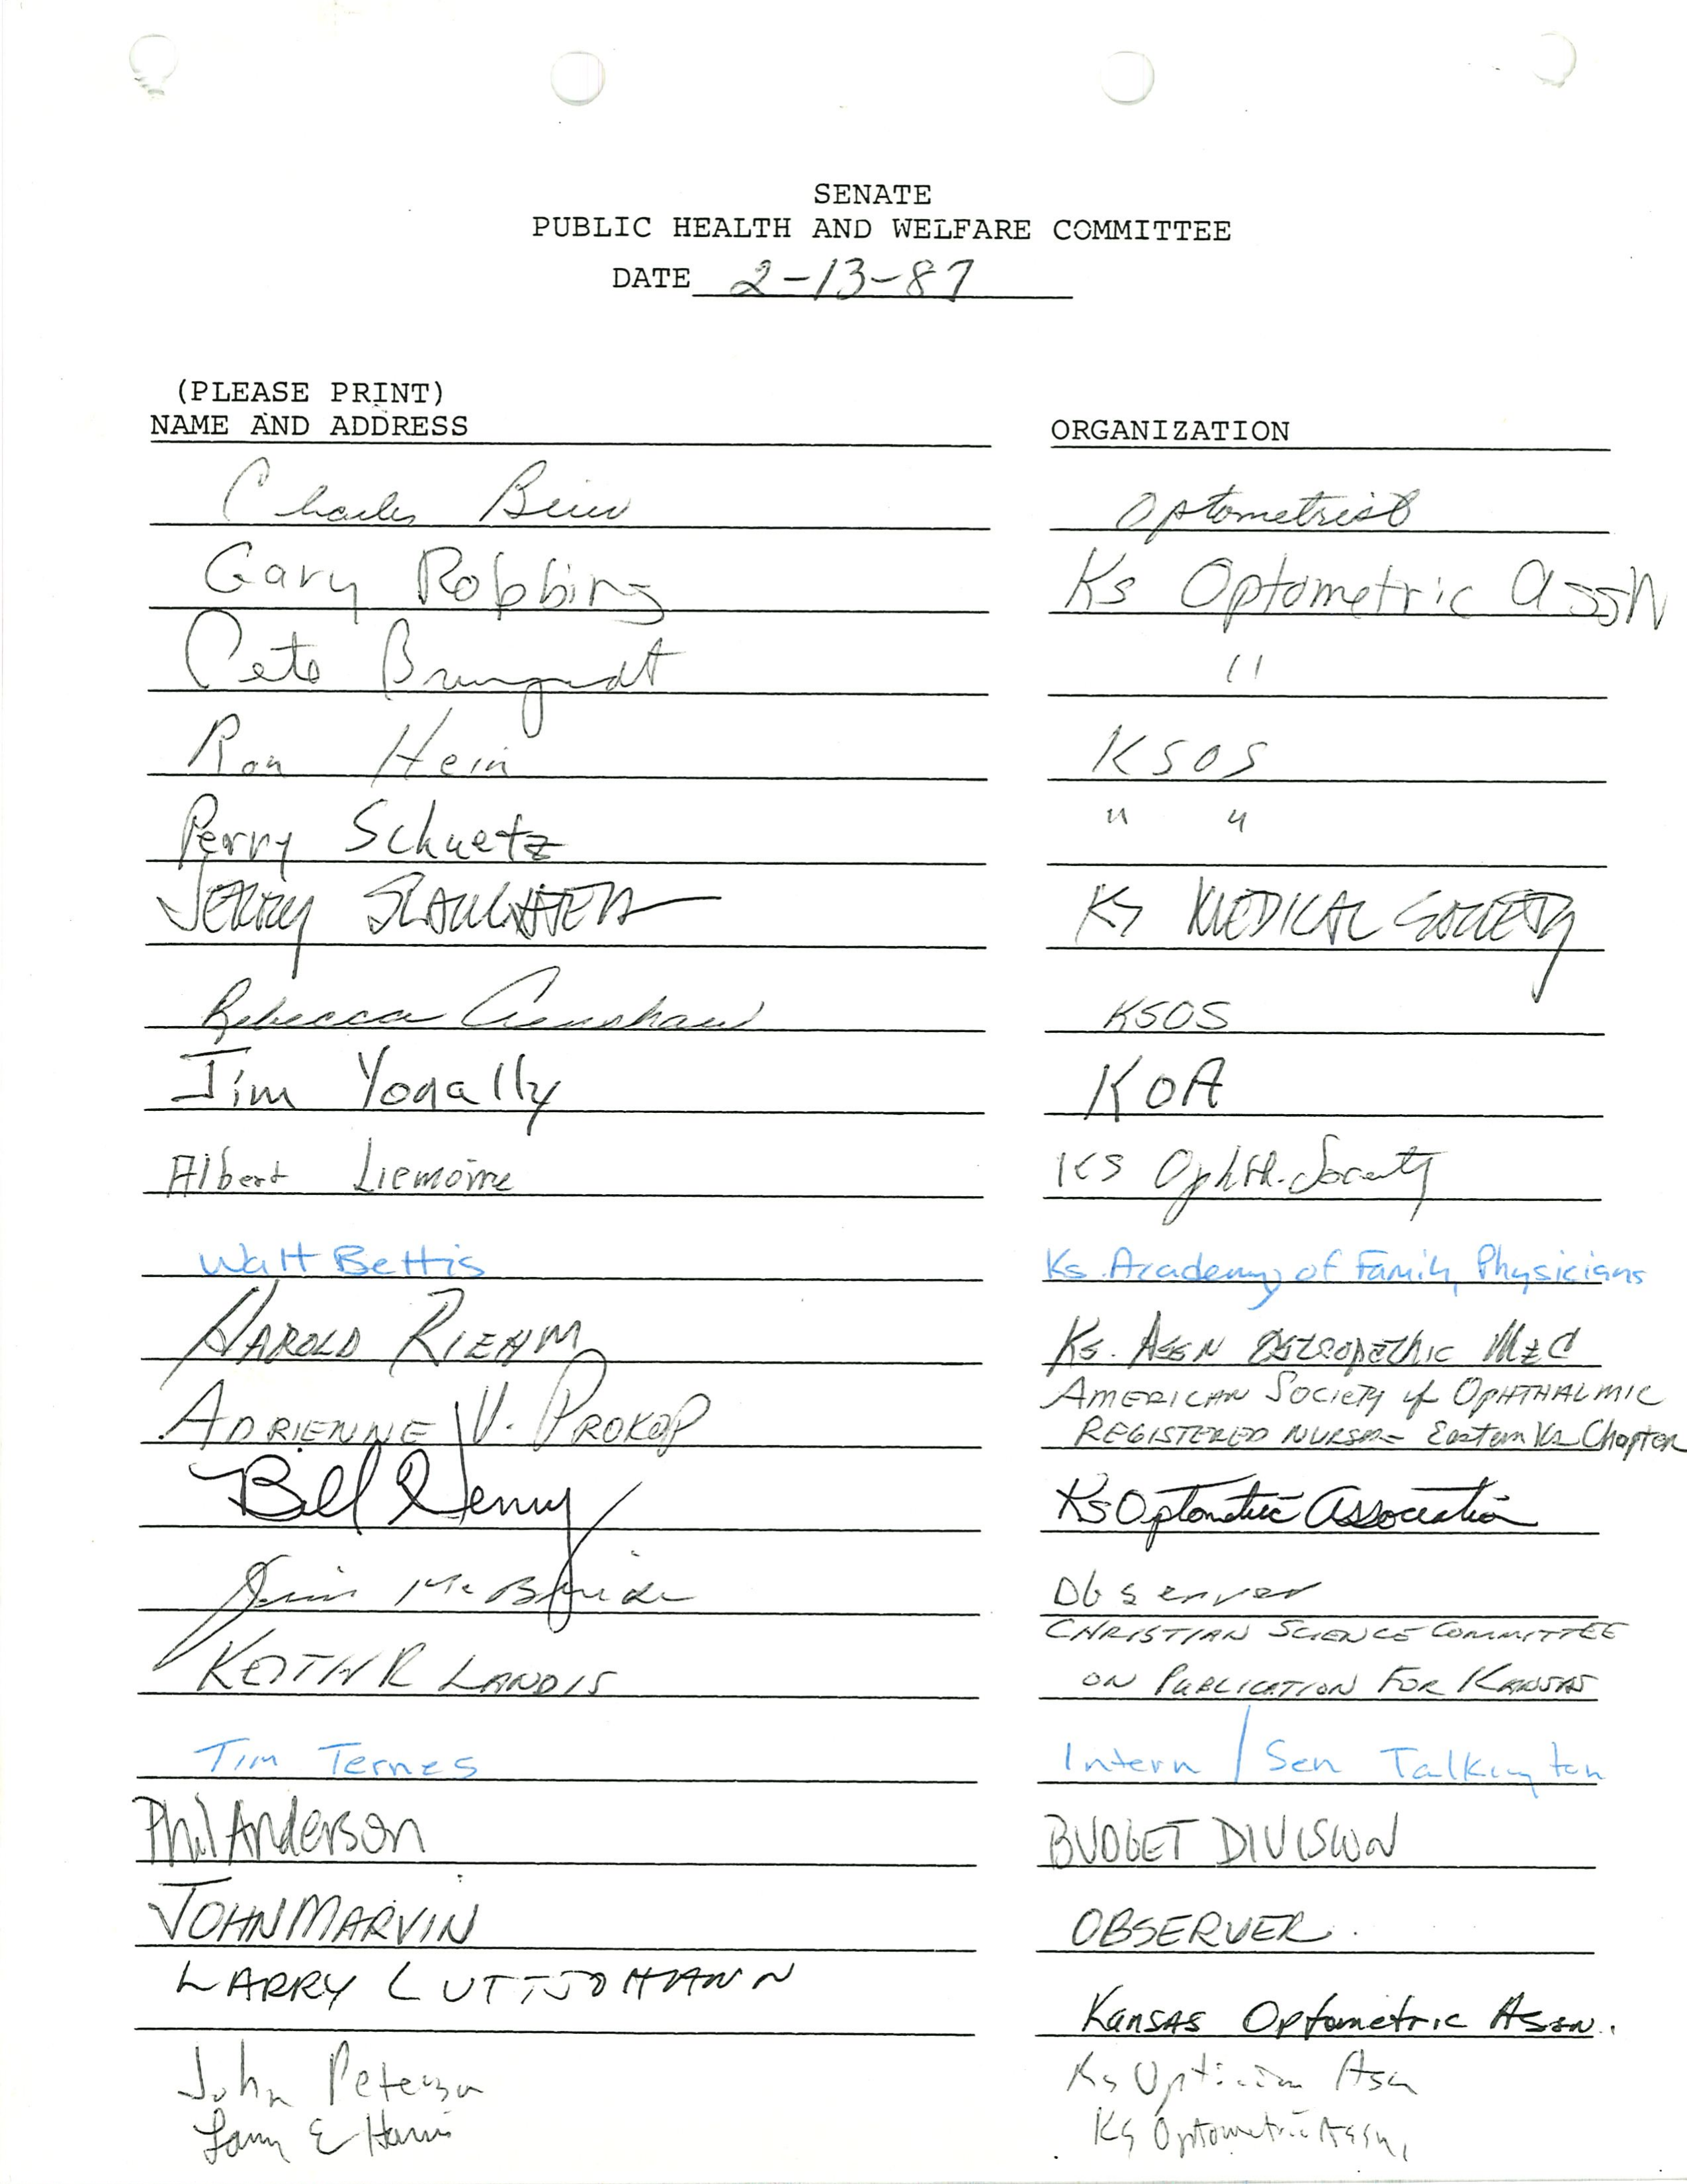 SENATE
PUBLIC HEALTH AND WELFARE COMMITTEE
DATE 2-13-87
(PLEASE PRINT)
NAME AND ADDRESS ORGANIZATION
Charles Optometrist
Gary Robbins Ks Optometric Assn
Pete "
Ron Hein KSOS
Perry Schuetz " "
JERRY SLAUGHTER KS MEDICAL SOCIETY
Rebecca Crenshaw KSOS
Jim Yonally KOA
Albert Liemoine KS Ophth. Society
Walt Bettis Ks Academy of Family Physicians
HAROLD RIEHM Ks. ASSN OSTEOPATHIC MED
ADRIENNE V. PROKOP AMERICAN SOCIETY of OPHTHALMIC
REGISTERED Eastern Ks Chapter
Bill Henry Ks Optometric Association
Jim McBride Observer
CHRISTIAN SCIENCE COMMITTEE
KEITH R LANDIS ON PUBLICATION FOR KANSAS
Tim Ternes Intern / Sen Talkington
Phil Anderson BUDGET DIVISION
JOHN MARVIN OBSERVER.
LARRY LUTTJOHANN
Kansas Optometric Assn.
John Peterson Ks Optician Asn
E Harris Ks Optometric Assn,